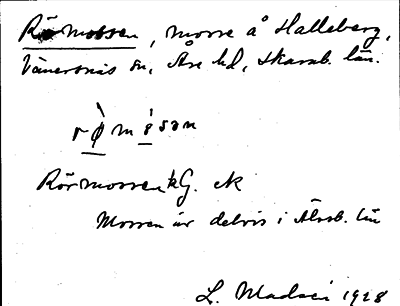 Rörmossen, mosse å Halleberg,
Vänersnäs sn, Åse hd, Skarab. län.
rø̀mósan
Rörmossen kG. ek
Mossen är delvis i Älvsb. län
L. Madsén 1928